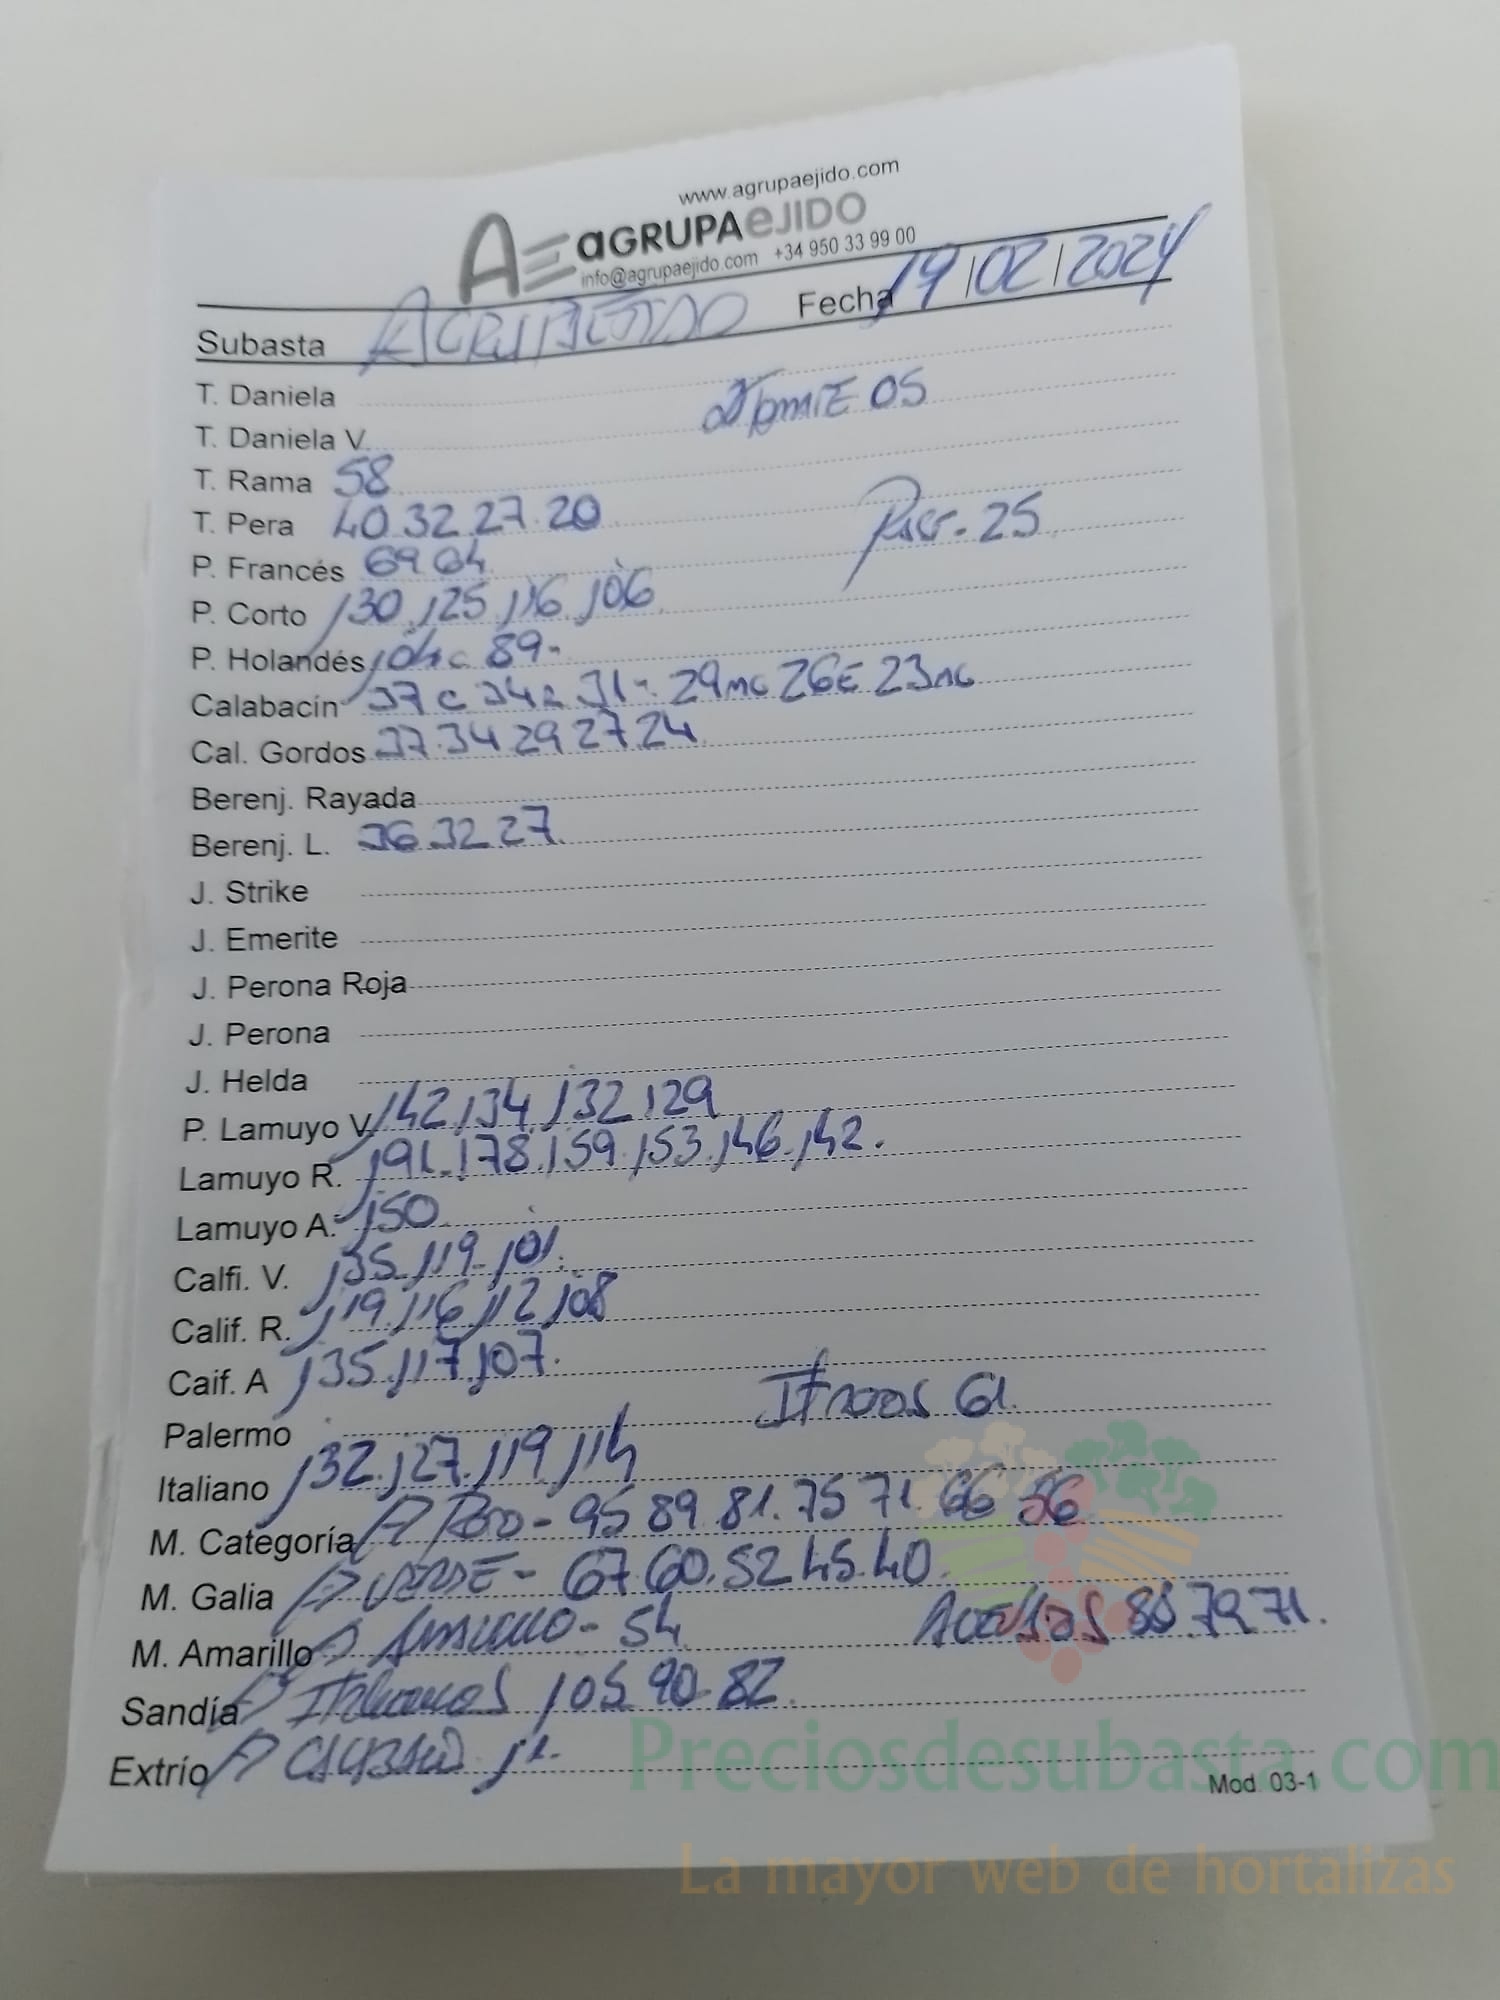 www.agrupaejido.com
AE aGRUPAeJIDO
info@agrupaejido.com +34 950 33 99 00
Subasta AGRUPAEJIDO Fecha 19/02/2024
T. Daniela
T. Daniela V. 05
T. Rama 58
T. Pera 40.32.27.20
25
P. Francés 69 64
P. Corto 130.125.116.106
P. Holandés 104c 89-
Calabacín 37c 34c 31-. 29mc 26E 23mc
Cal. Gordos 37.34 29 27.24
Berenj. Rayada
Berenj. L. 36.32 27.
J. Strike
J. Emerite
J. Perona Roja
J. Perona
J. Helda
P. Lamuyo V. 142.134.132.129
Lamuyo R. 191.178.159.153.146.142.
Lamuyo A. 150
Calfi. V. 135.119.101.
Calif. R. 119.116.112.108
Caif. A 135.117.107.
Palermo 61.
Italiano 132.127.119.114
M. Categoría A Rojo - 95 89.81.75 71.66 56
M. Galia A VERDE - 67.60.52 45.40
M. Amarillo A Amarillo - 54 88.79.71.
Sandía A Italianos 105.90.82.
Extrío A
Mod. 03-1
Preciosdesubasta.com
La mayor web de hortalizas